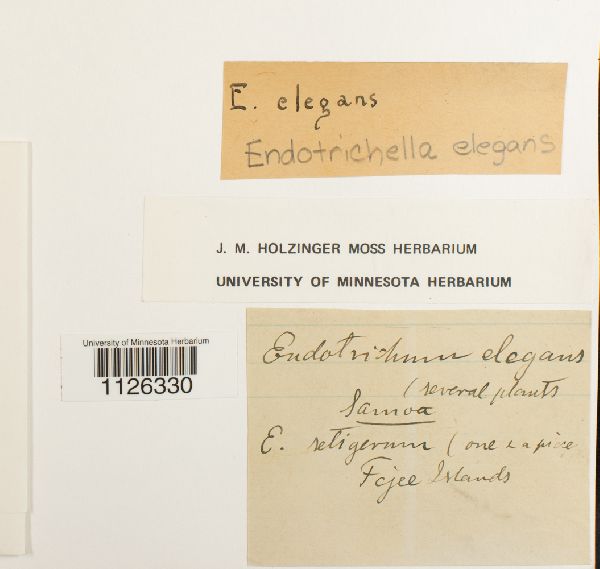 E. elegans
Endotrichella elegans
J. M. HOLZINGER MOSS HERBARIUM
UNIVERSITY OF MINNESOTA HERBARIUM
University of Minnesota Herbarium
1126330
Endotrichum elegans
(several plants
Samoa
E. setigerum (one
Fejee Islands